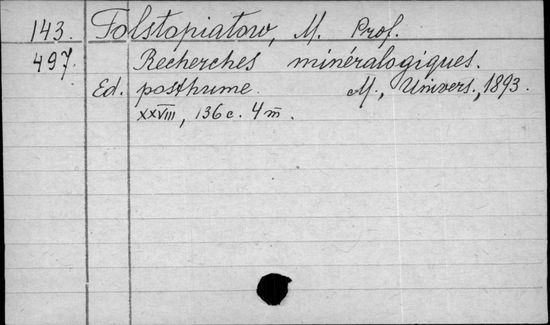 143. Tolstopiatow, M. Prof.
497. Recherches minéralogiques.
Ed. posthume. M., Univers., 1893.
XXVIII, 136 c. 4 m.